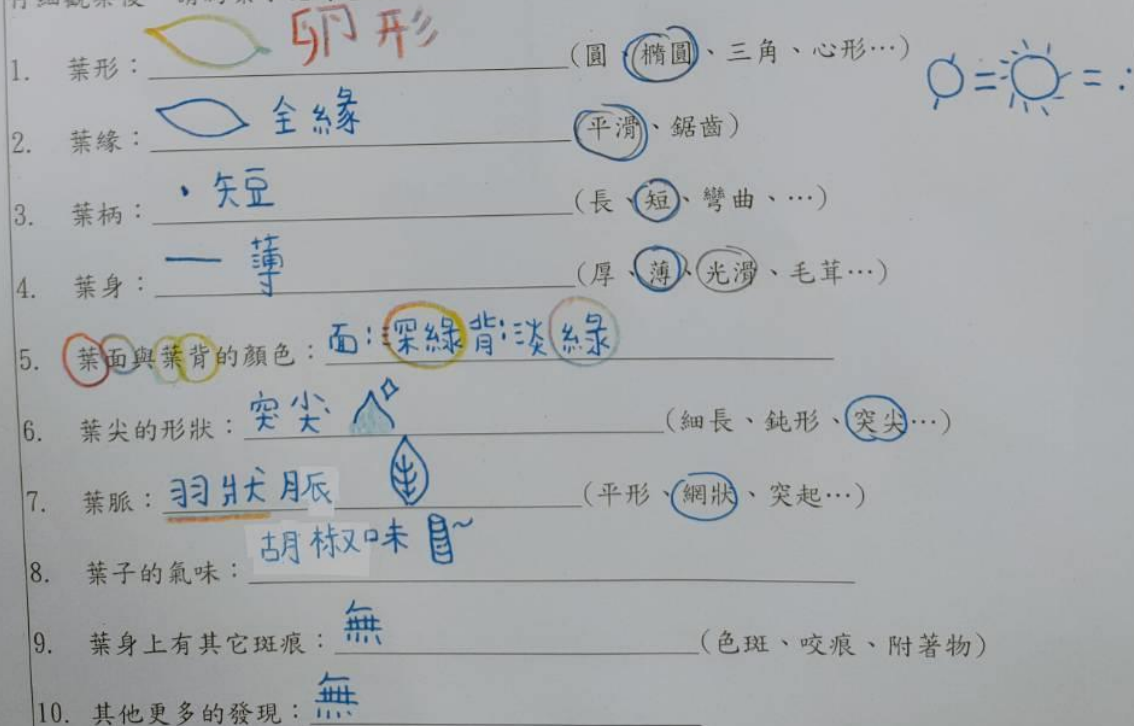 1. 葉形：卵形（圓、橢圓、三角、心形…）
2. 葉緣：全緣（平滑、鋸齒）
3. 葉柄：短（長、短、彎曲、…）
4. 葉身：薄（厚、薄、光滑、毛茸…）
5. 葉面與葉背的顏色：面：深綠 背：淡綠
6. 葉尖的形狀：突尖（細長、鈍形、突尖…）
7. 葉脈：羽狀脈（平形、網狀、突起…）
8. 葉子的氣味：胡椒味
9. 葉身上有其它斑痕：無（色斑、咬痕、附著物）
10. 其他更多的發現：無